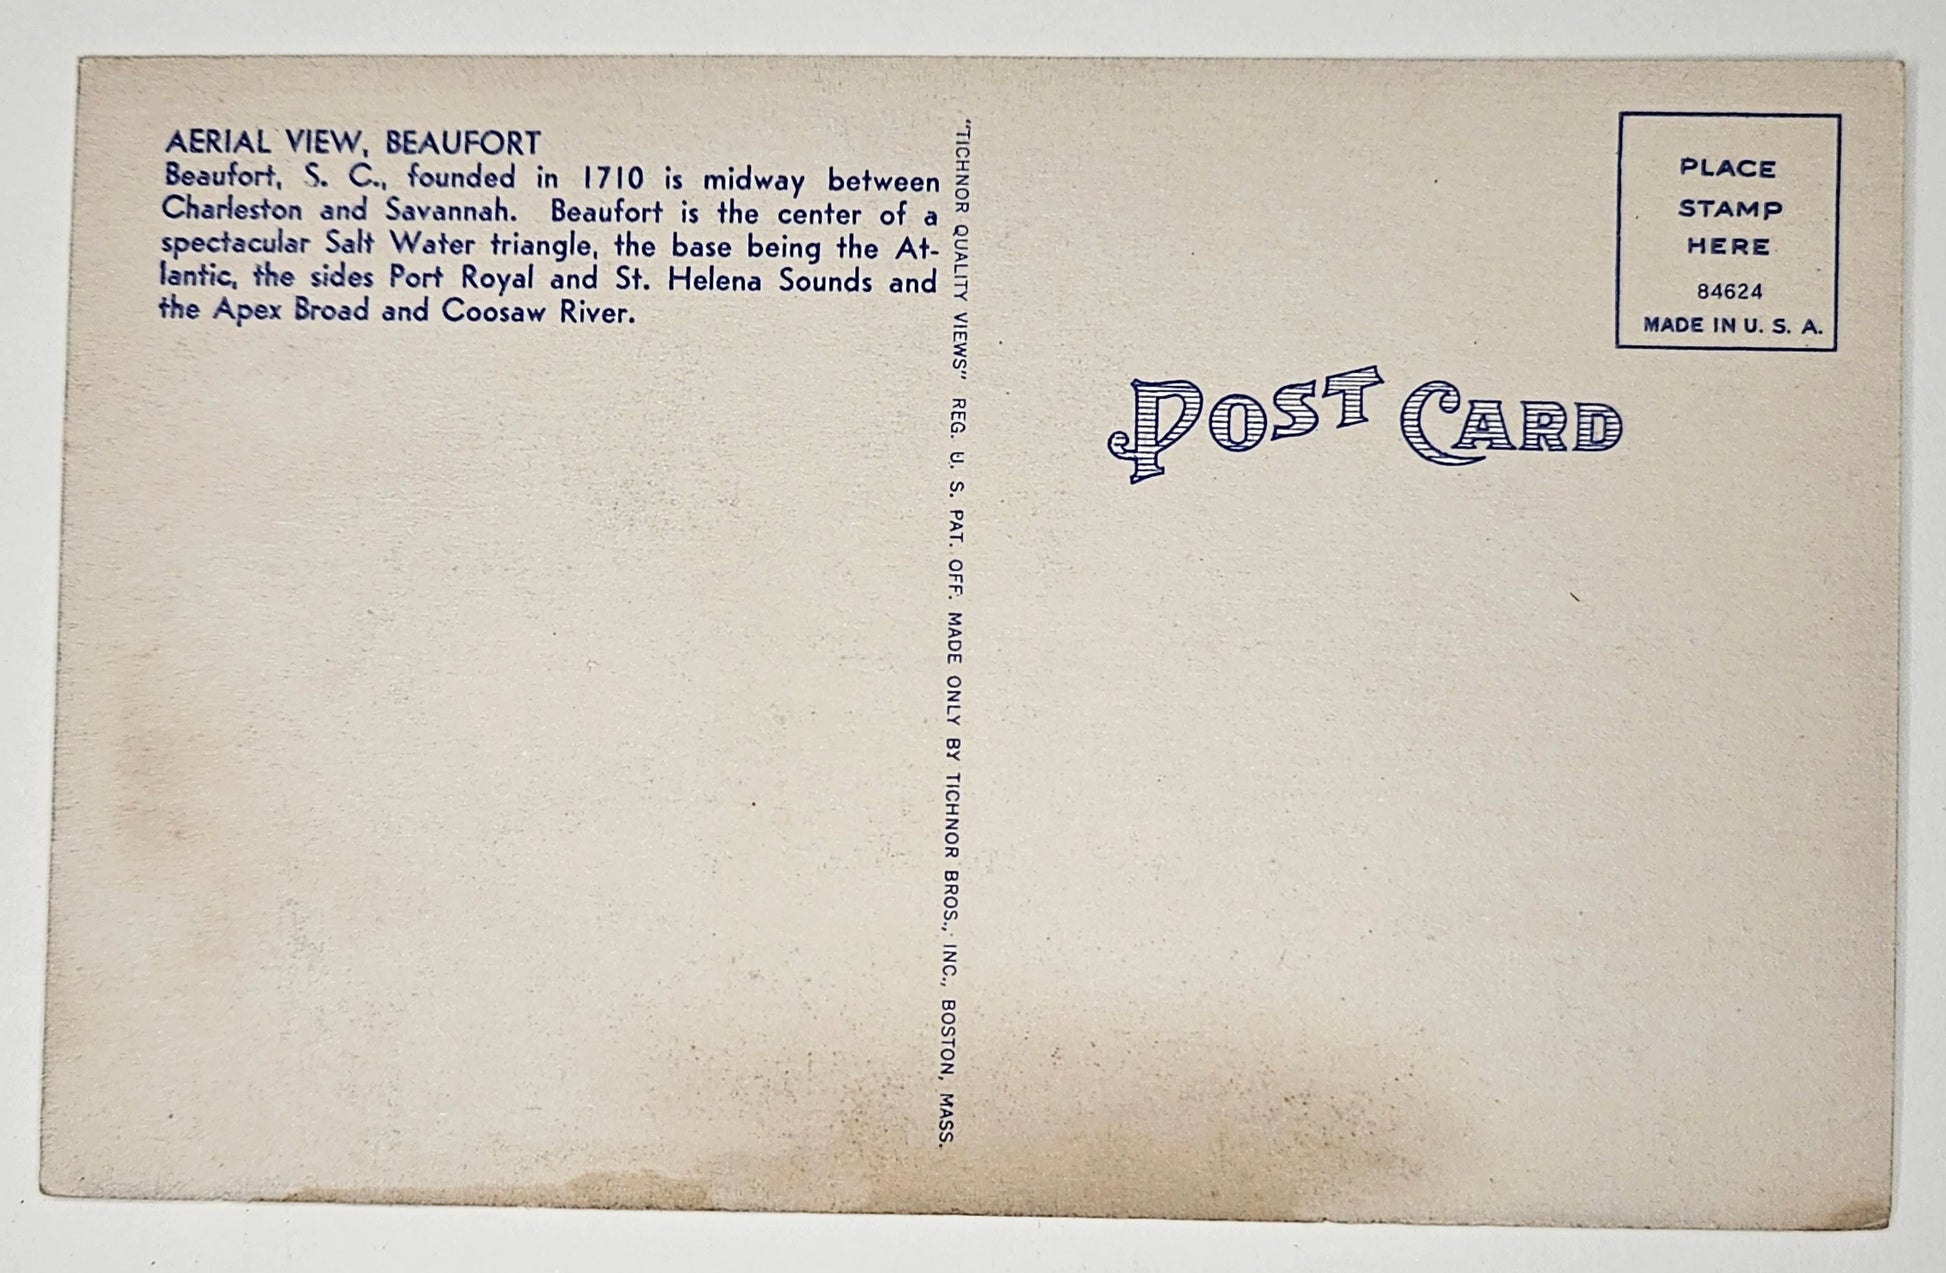 AERIAL VIEW, BEAUFORT
Beaufort, S. C., founded in 1710 is midway between
Charleston and Savannah. Beaufort is the center of a
spectacular Salt Water triangle, the base being the At-
lantic, the sides Port Royal and St. Helena Sounds and
the Apex Broad and Coosaw River.
"TICHNOR QUALITY VIEWS" REG. U. S. PAT. OFF. MADE ONLY BY TICHNOR BROS., INC., BOSTON, MASS.
PLACE
STAMP
HERE
84624
MADE IN U. S. A.
POST CARD